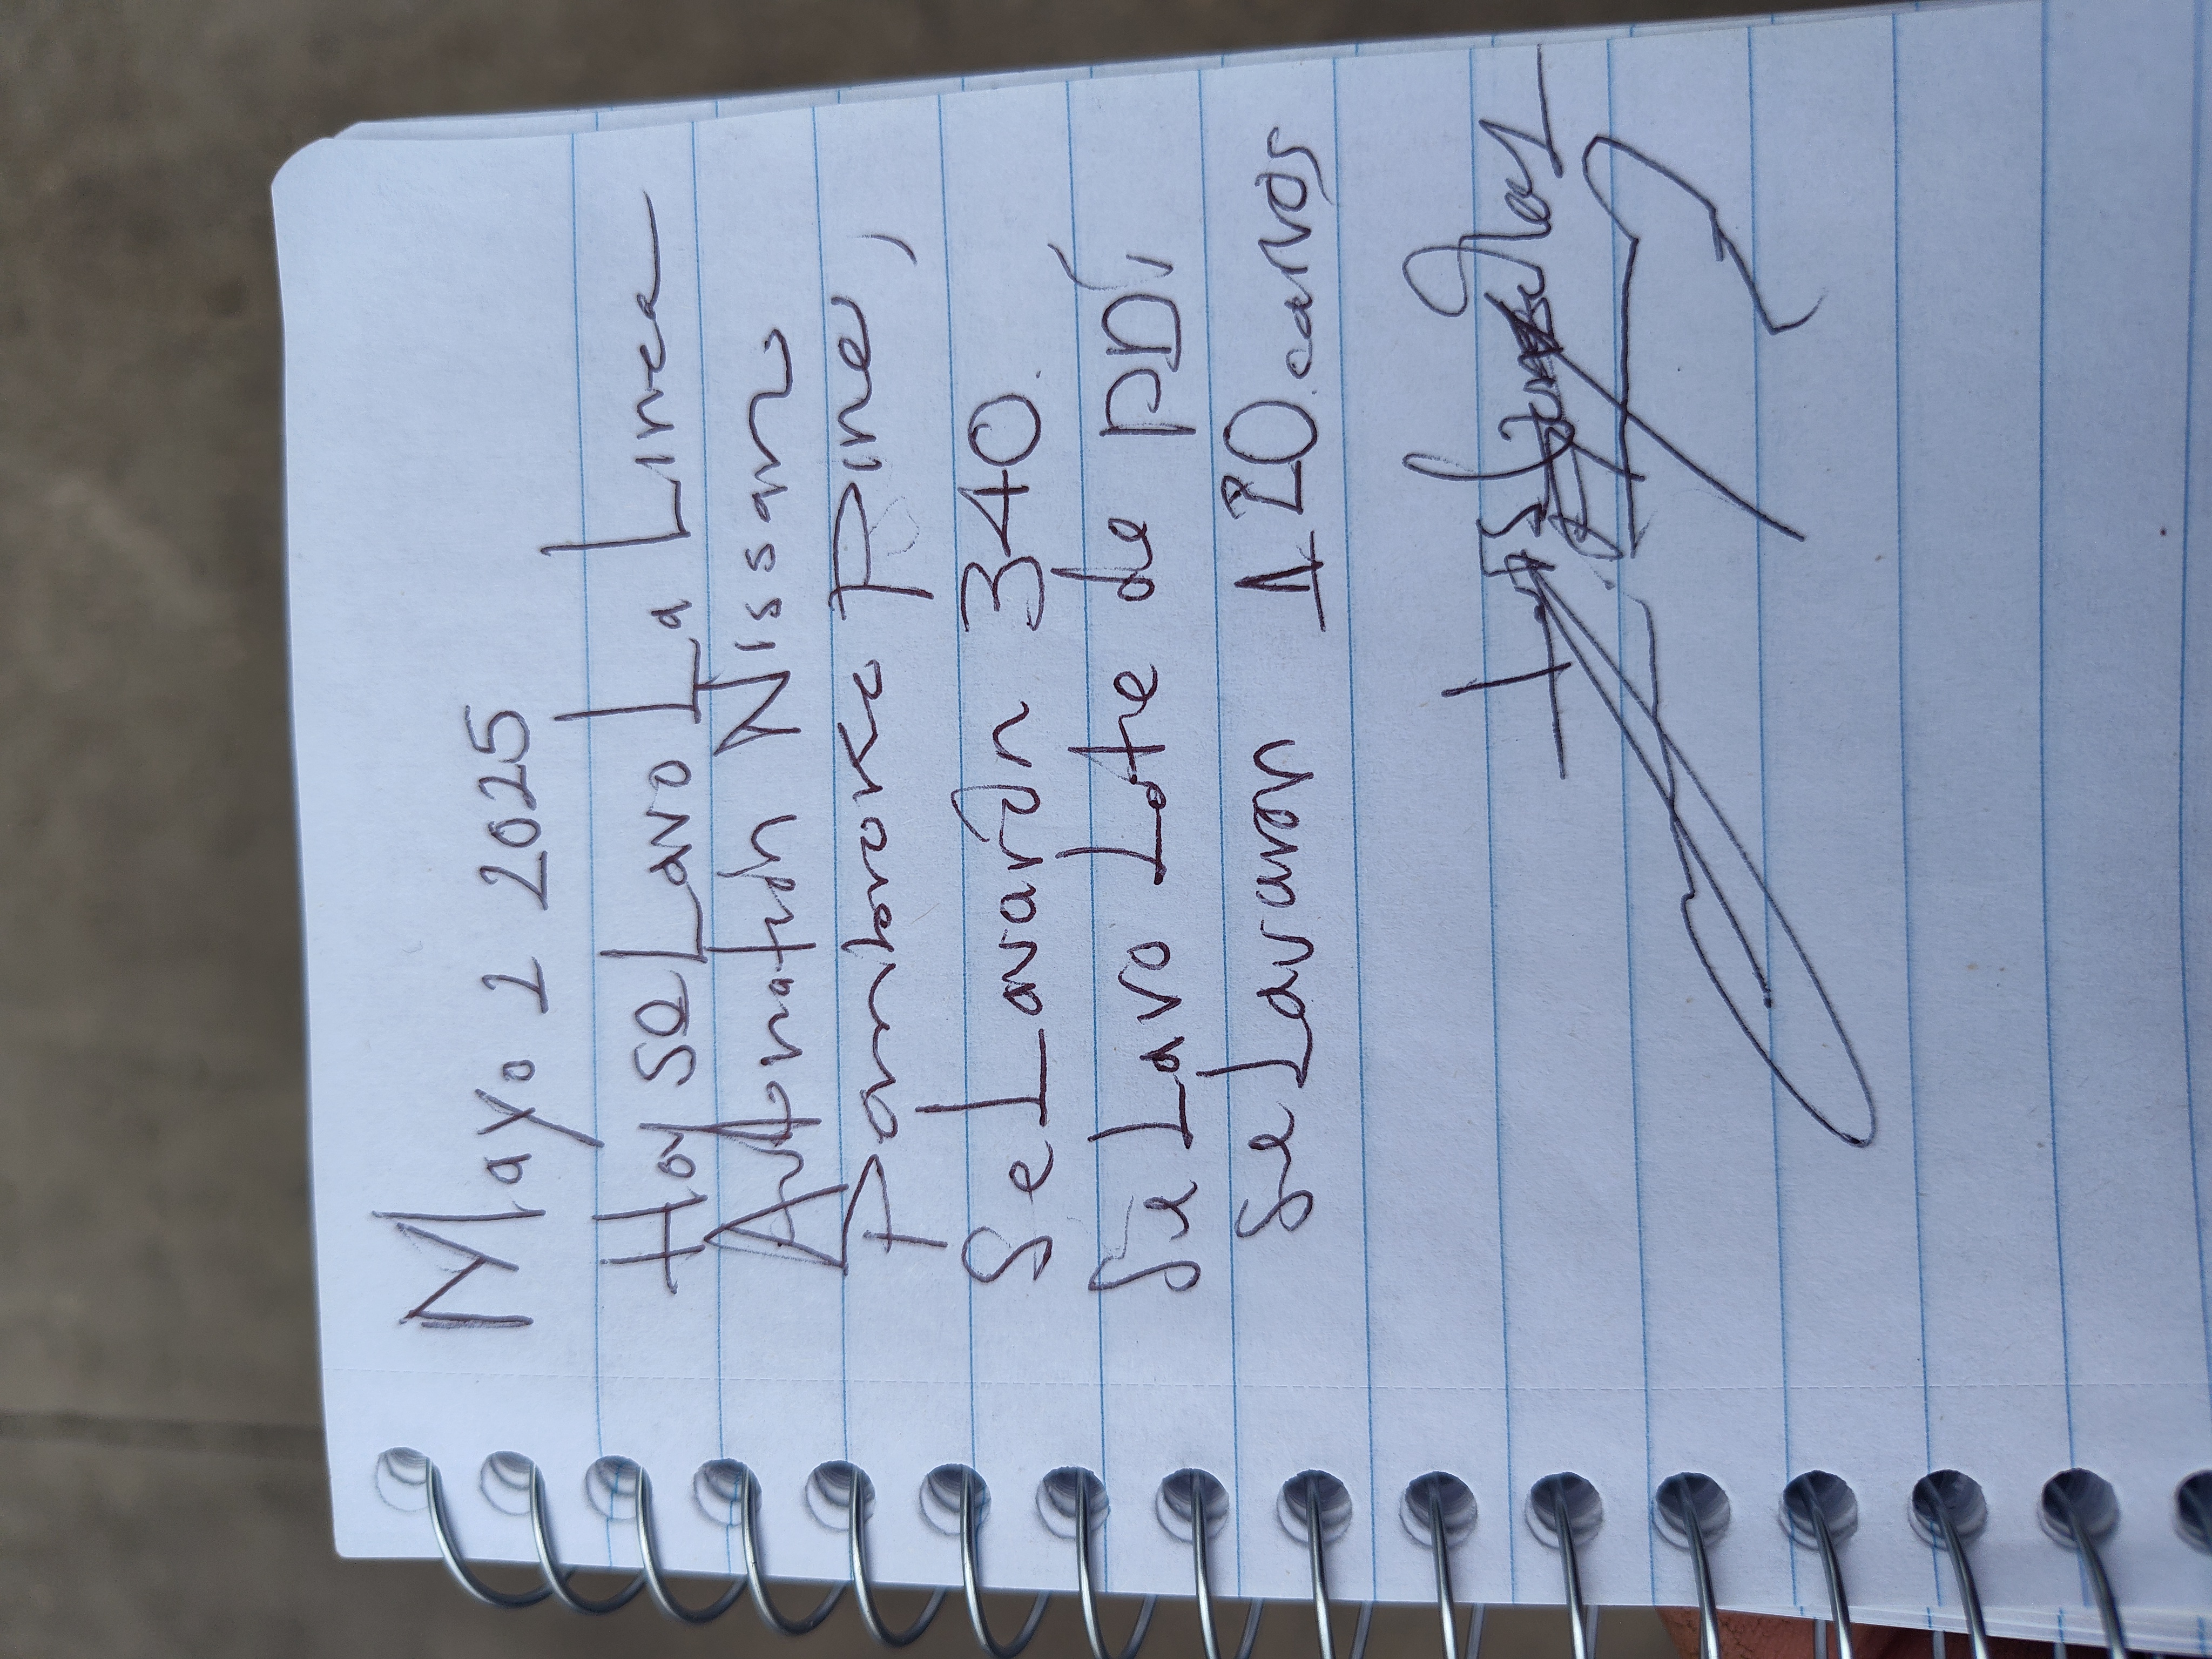 Mayo 1 2025
Hoy se Lavo La Linea
Automation Nissan
Pembroke Pine,
Se Lavarón 340.
Se Lavo Lote de PDI,
Se Lavaron 120. carros